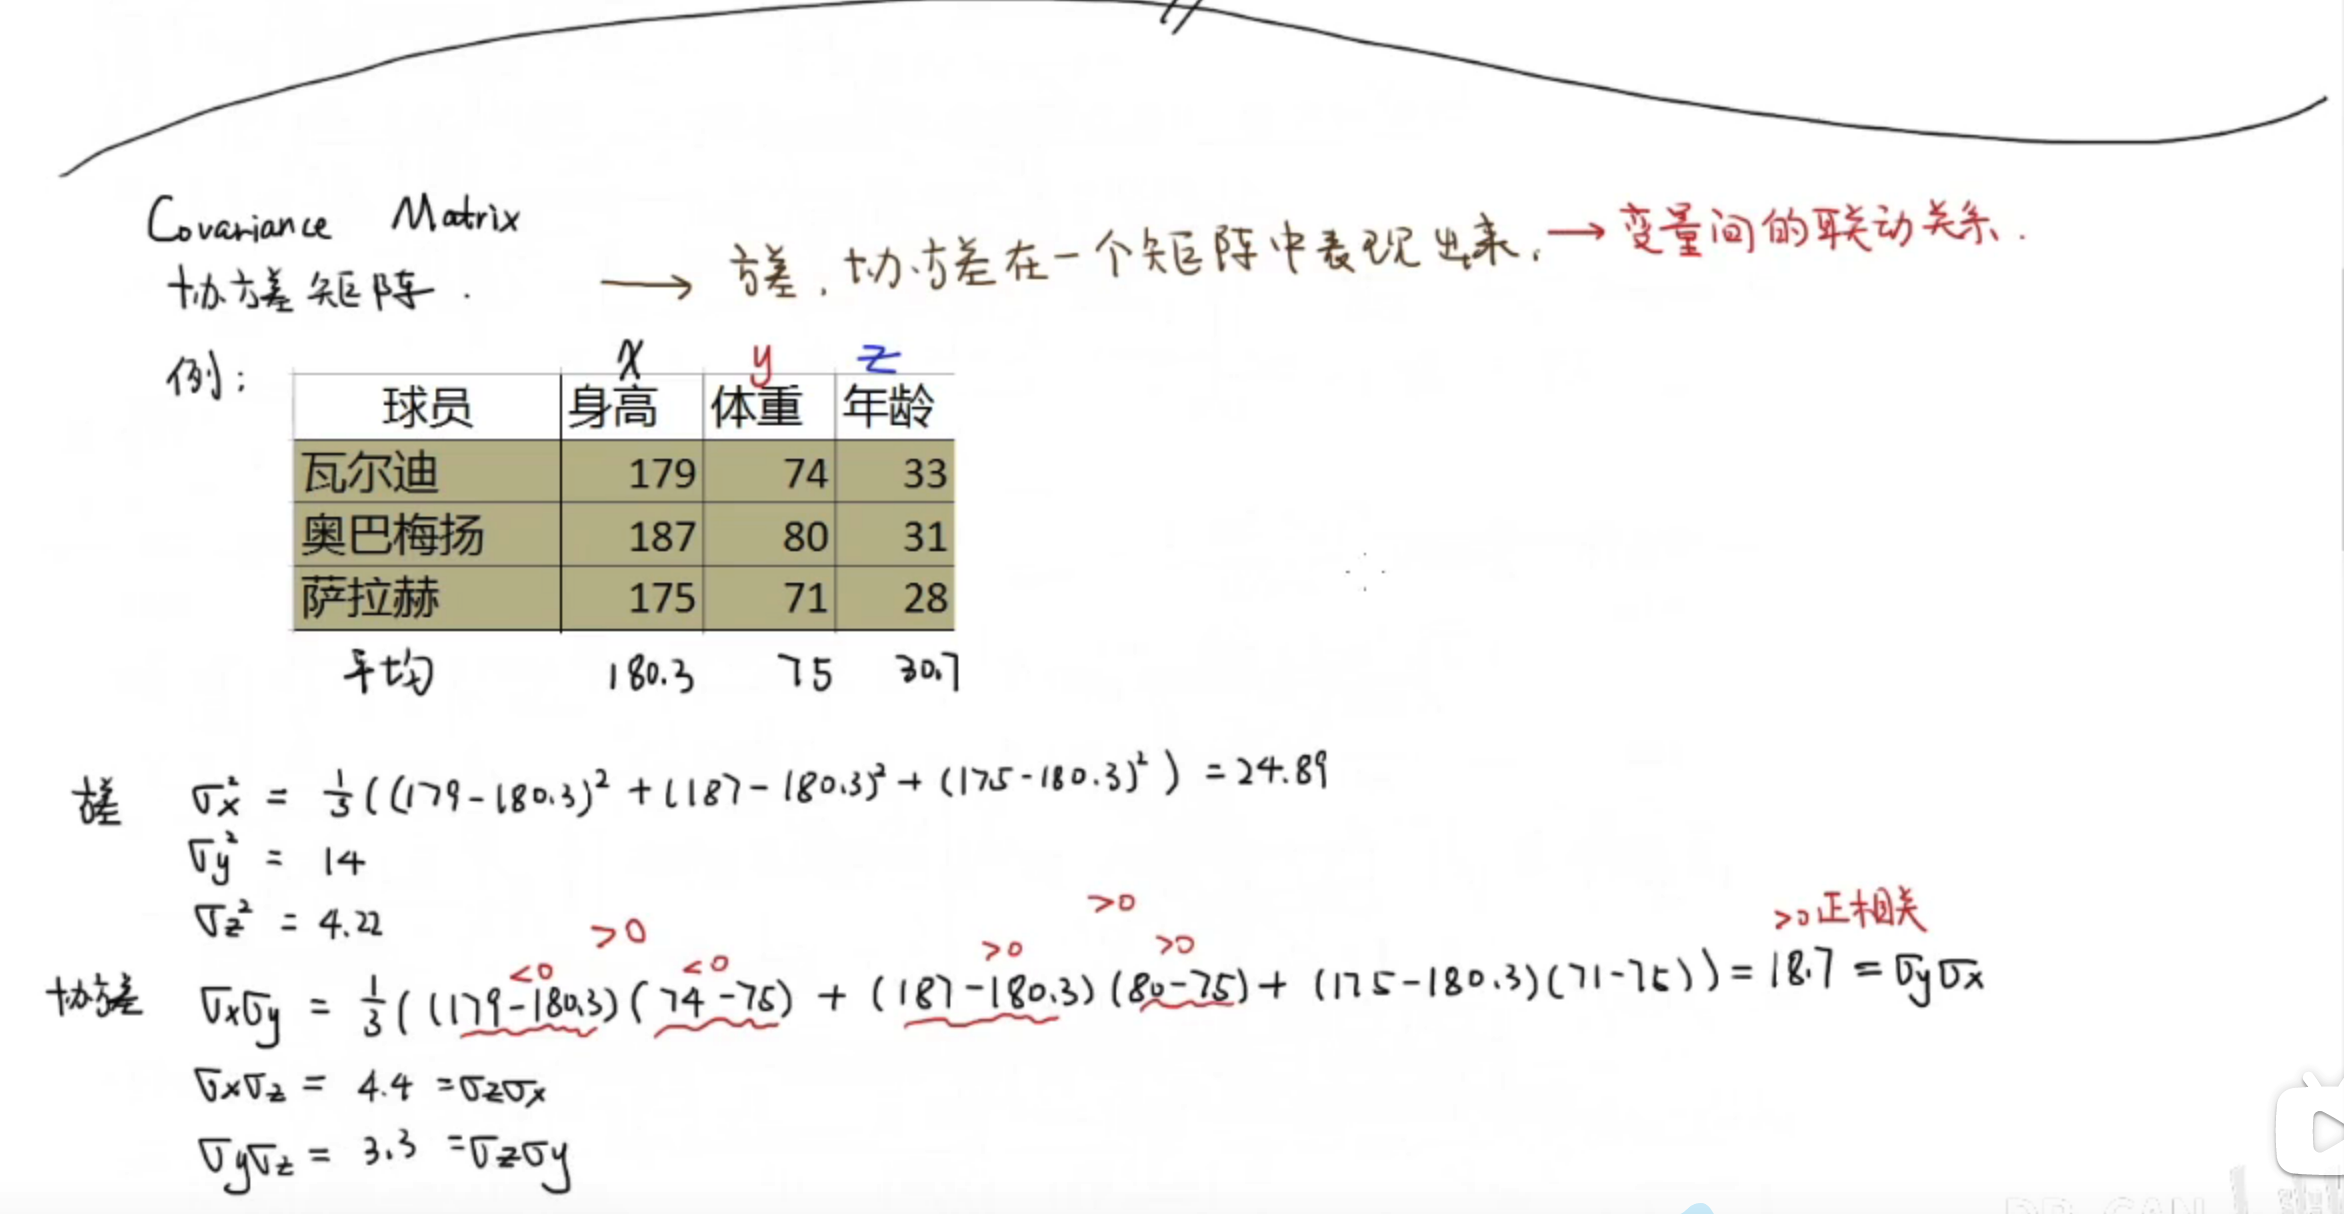 Covariance Matrix
协方差矩阵. → 方差, 协方差在一个矩阵中表现出来, → 变量间的联动关系.
例:
x y z
球员 身高 体重 年龄
瓦尔迪 179 74 33
奥巴梅扬 187 80 31
萨拉赫 175 71 28
平均 180.3 75 30.7
方差 σx² = 1/3((179-180.3)² + (187-180.3)² + (175-180.3)²) = 24.89
σy² = 14
σz² = 4.22
>0 >0 >0正相关
<0 <0 >0 >0
协方差 σxσy = 1/3((179-180.3)(74-75) + (187-180.3)(80-75) + (175-180.3)(71-75)) = 18.7 = σyσx
σxσz = 4.4 = σzσx
σyσz = 3.3 = σzσy
DR_CAN